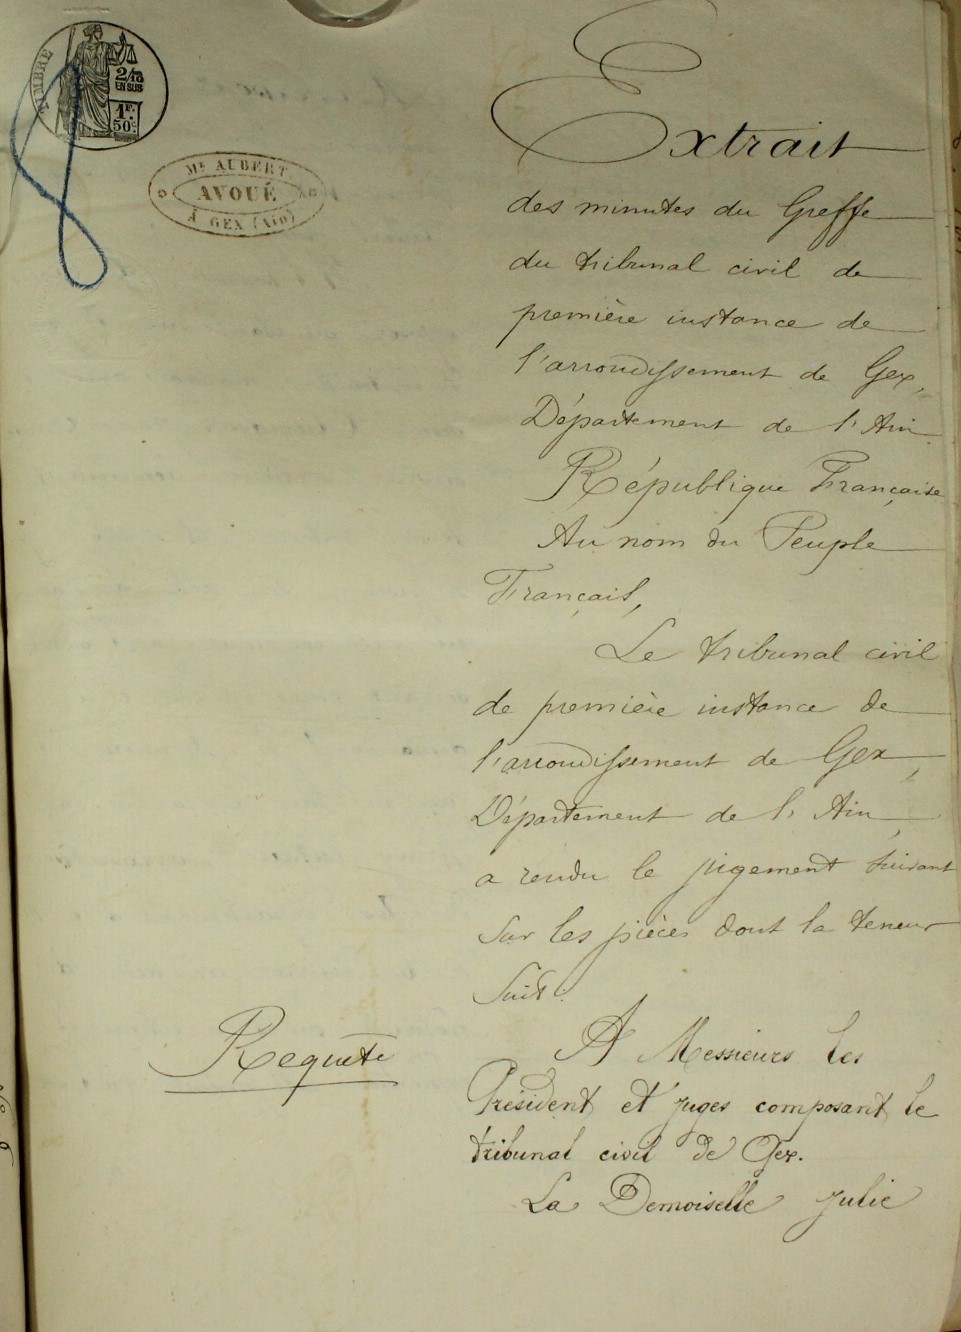 TIMBRE
2/10
EN SUS
1F.
50c.
Me AUBERT
AVOUÉ
À GEX (Ain)
Extrait
des minutes du Greffe
du tribunal civil de
première instance de
l'arrondissement de Gex,
Département de l'Ain.
République Française
Au nom du Peuple
Français,
Le tribunal civil
de première instance de
l'arrondissement de Gex,
Département de l'Ain,
a rendu le jugement suivant
sur les pièces dont la teneur
suit:
Requête
A Messieurs les
Président et Juges composant le
tribunal civil de Gex.
La Demoiselle Julie